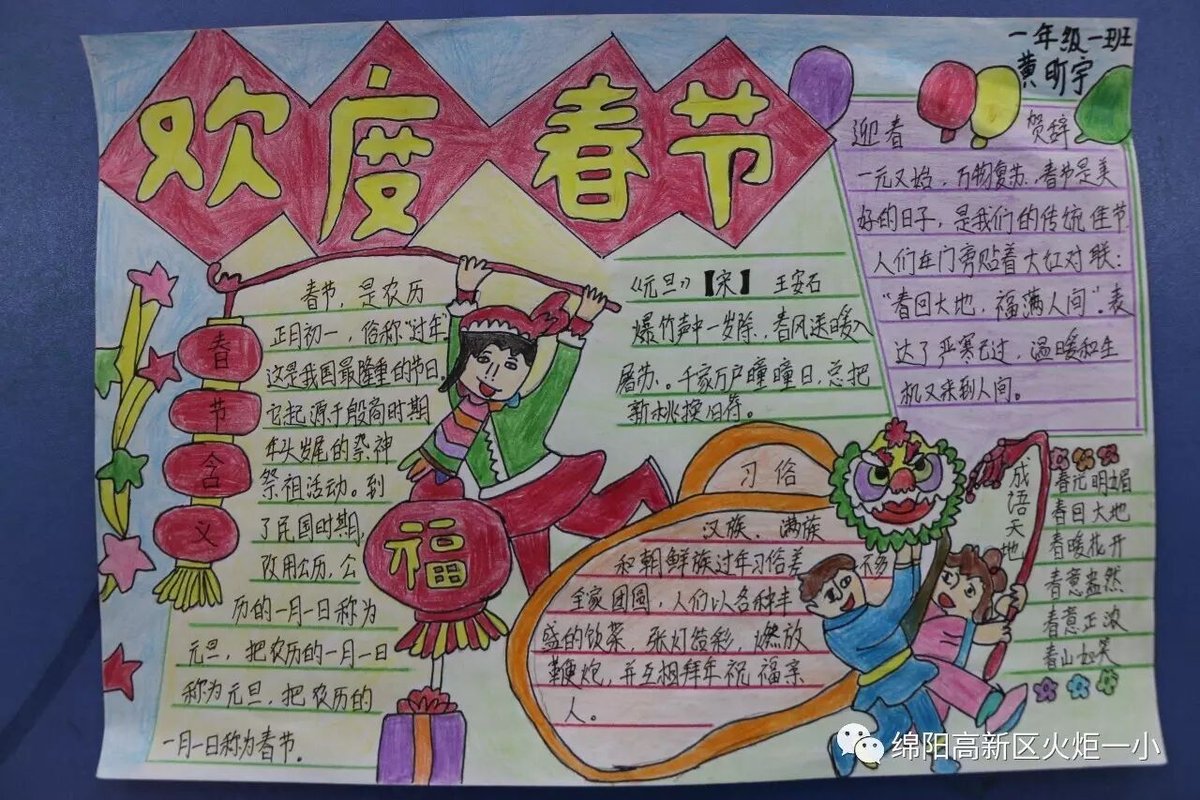 欢度春节
一年级一班
黄昕宇
迎春 贺辞
一元又始，万物复苏，春节是美
好的日子，是我们的传统佳节
人们在门旁贴着大红对联：
“春回大地，福满人间”。表
达了严寒已过，温暖和生
机又来到人间。
春节含义
春节，是农历
正月初一，俗称“过年”
这是我国最隆重的节日。
它起源于殷商时期
年头岁尾的祭神
祭祖活动。到
了民国时期，
改用公历，公
历的一月一日称为
元旦，把农历的一月一日
称为元旦，把农历的
一月一日称为春节。
福
《元旦》【宋】 王安石
爆竹声中一岁除，春风送暖入
屠苏。千家万户曈曈日，总把
新桃换旧符。
习俗
汉族、满族
和朝鲜族过年习俗差不多
全家团圆，人们以各种丰
盛的饭菜，张灯结彩，燃放
鞭炮，并互相拜年祝福亲
人。
成语天地
春光明媚
春回大地
春暖花开
春意盎然
春意正浓
春山如笑
绵阳高新区火炬一小